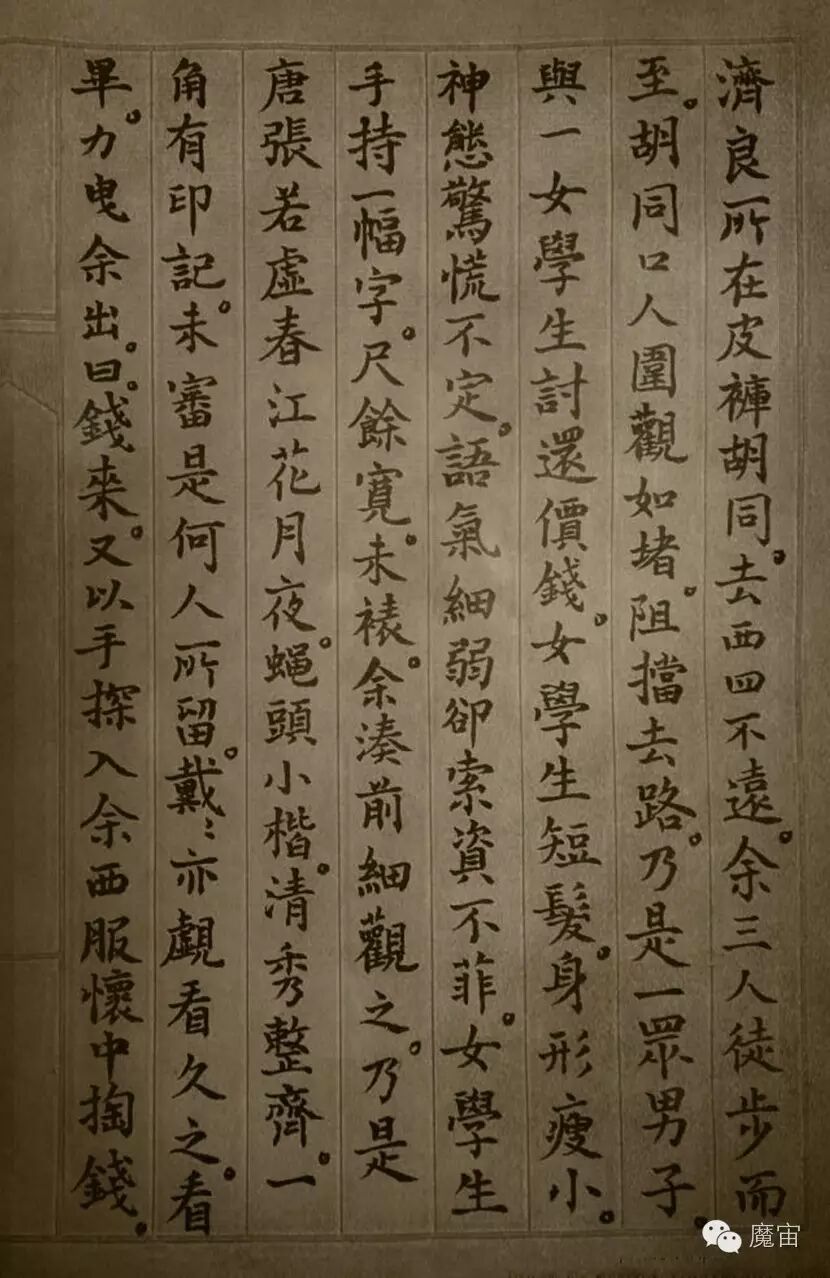 濟良所在皮褲胡同。去西四不遠。余三人徒步而
至。胡同口人圍觀如堵。阻擋去路。乃是一眾男子。
與一女學生討還價錢。女學生短髮。身形瘦小。
神態驚慌不定。語氣細弱卻索資不菲。女學生
手持一幅字。尺餘寬。未裱。余湊前細觀之。乃是
唐張若虛春江花月夜。蝇頭小楷。清秀整齊。一
角有印記。未審是何人所留。戴〻亦覷看久之。看
畢。力曳余出。曰。錢來。又以手探入余西服懷中掏錢。
魔宙